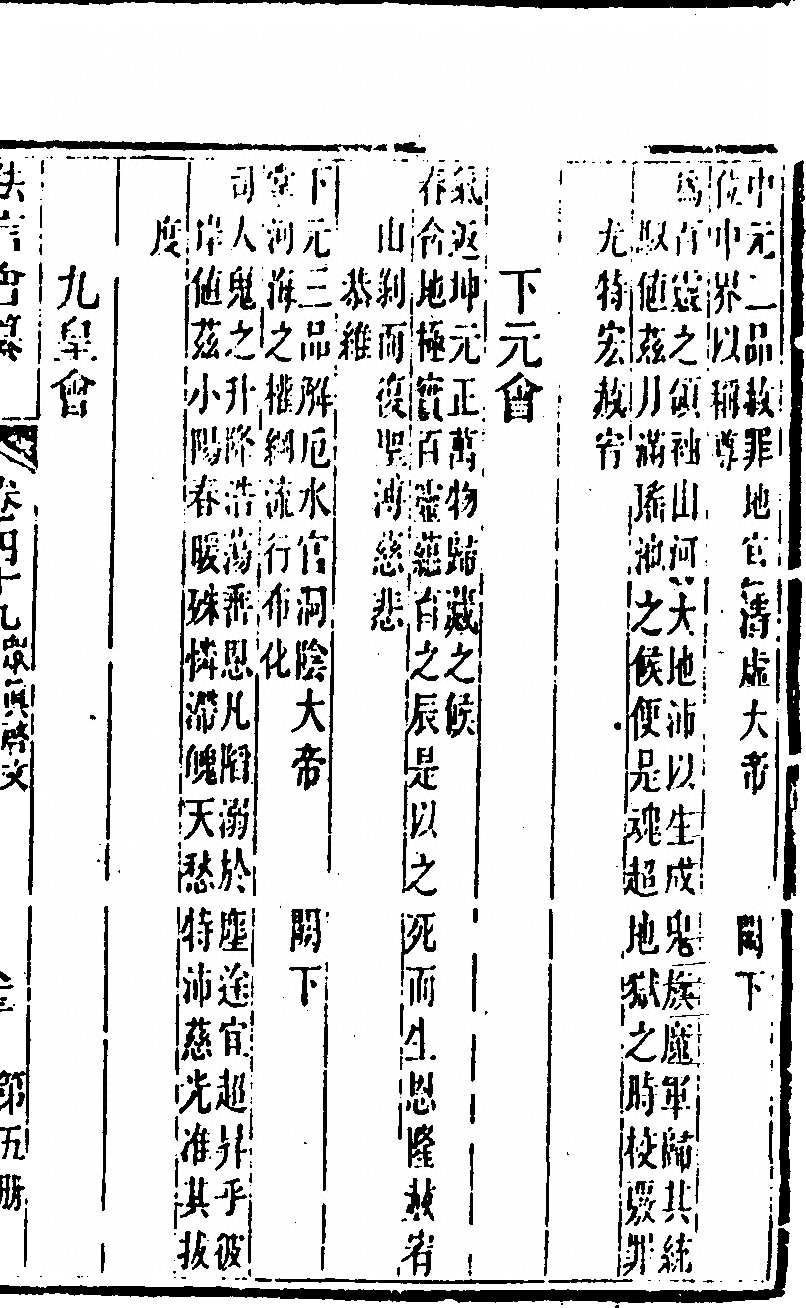 中元二品赦罪地官清虛大帝　闕下
位中界以稱尊
為百靈之領袖山河大地沛以生成鬼族魔軍歸其統
馭値茲月滿瑤池之候便是魂超地獄之時校厥罪
尤特宏赦宥
下元會
氣返坤元正萬物歸藏之候
春含地極實百靈蘊百之辰是以之死而生恩隆赦宥
山剝而復聖溥慈悲
恭維
下元三品解厄水官洞陰大帝　闕下
掌河海之權綱流行布化
司人鬼之升降浩蕩垂恩凡陷溺於塵途宜超昇乎彼
岸値茲小陽春暖殊憐滯魄天愁特沛慈光准其拔
度
九皇會
法言會纂　卷四十九眾眞啓文　第五册